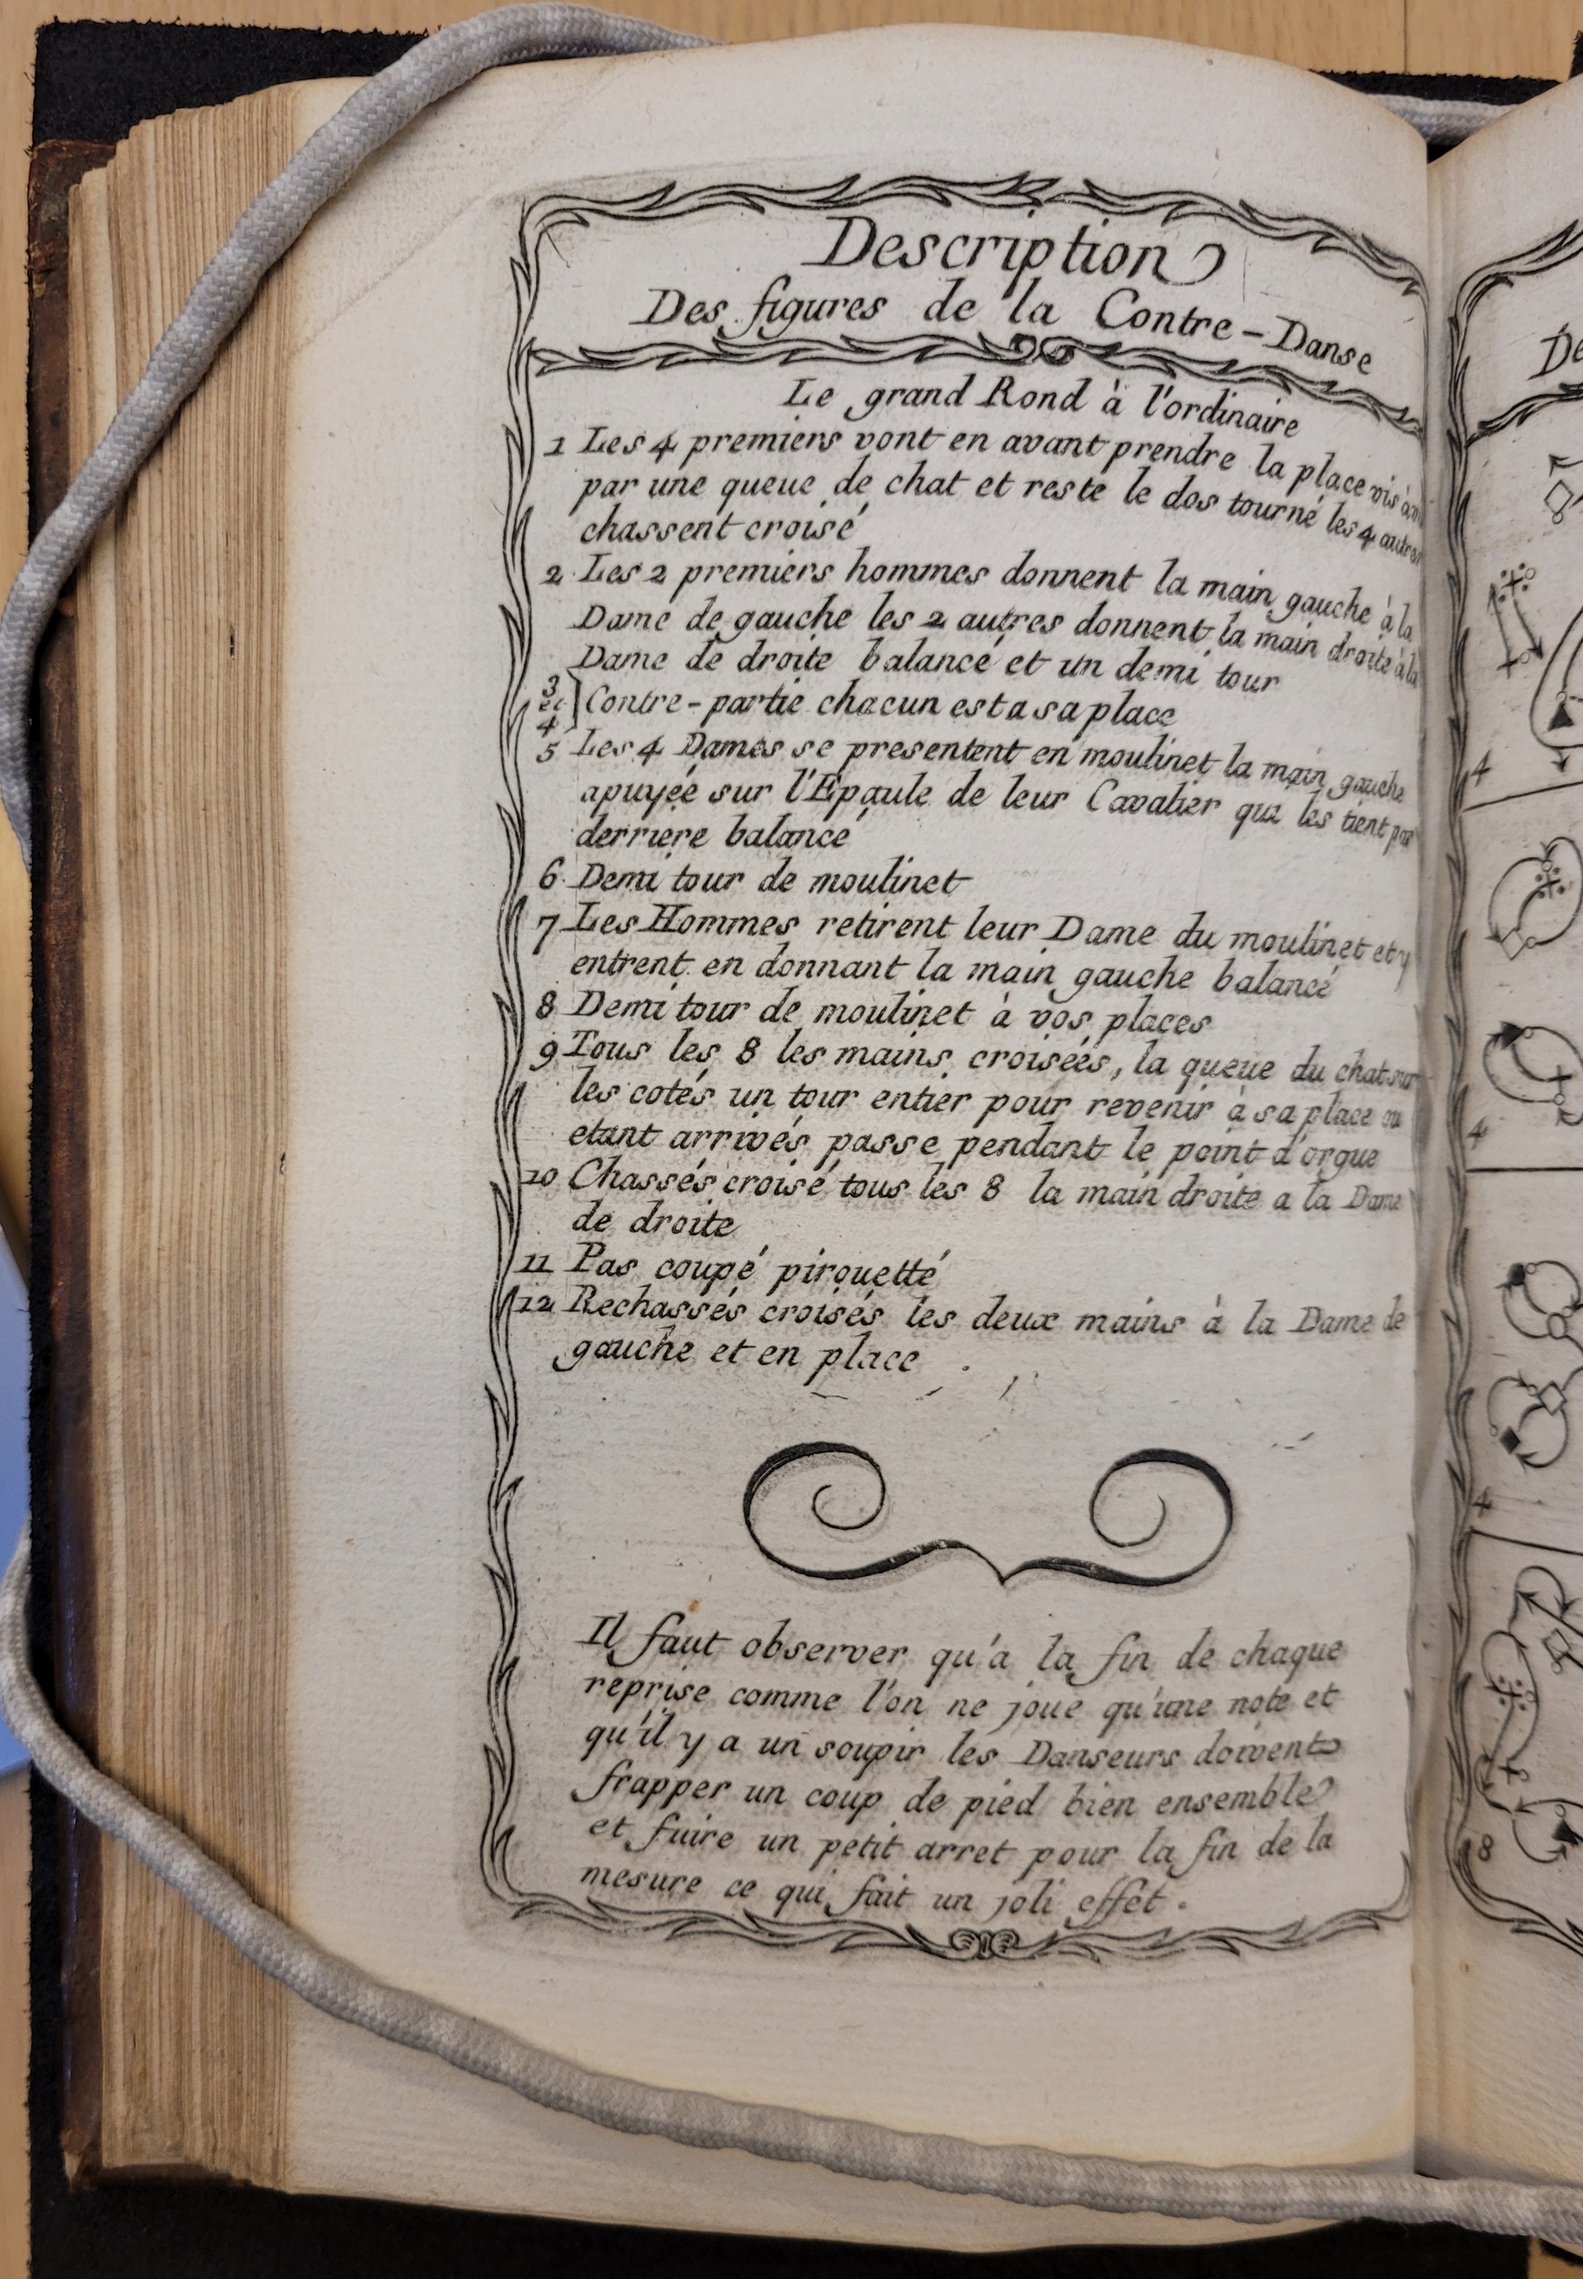 Description
Des figures de la Contre-Danse
Le grand Rond à l'ordinaire
1 Les 4 premiers vont en avant prendre la place vis à
par une queue de chat et reste le dos tourné les 4 autres
chassent croisé
2 Les 2 premiers hommes donnent la main gauche à la
Dame de gauche les 2 autres donnent la main droite à la
Dame de droite balancé et un demi tour
3 et 4 Contre-partie chacun est a sa place
5 Les 4 Dames se presentent en moulinet la main gauche
apuyée sur l'Epaule de leur Cavalier qui les tient par
derriere balancé
6 Demi tour de moulinet
7 Les Hommes retirent leur Dame du moulinet et y
entrent en donnant la main gauche balancé
8 Demi tour de moulinet à vos places
9 Tous les 8 les mains croisées, la queue du chat sur
les cotés un tour entier pour revenir à sa place ou
etant arrivés passe pendant le point d'orgue
10 Chassés croisé tous les 8 la main droite a la Dame
de droite
11 Pas coupé pirouetté
12 Rechassés croisés les deux mains à la Dame de
gauche et en place
Il faut observer qu'a la fin de chaque
reprise comme l'on ne joue qu'une note et
qu'il y a un soupir les Danseurs doivent
frapper un coup de pied bien ensemble
et fuire un petit arret pour la fin de la
mesure ce qui fait un joli effet.
De
4
4
4
8